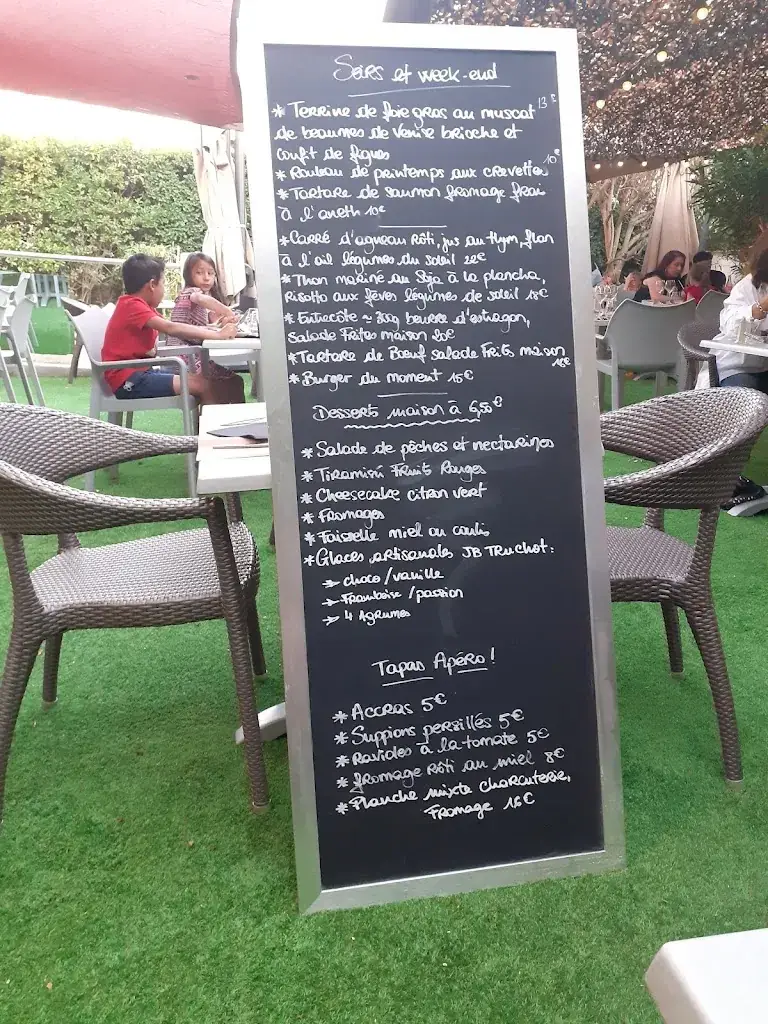 Soirs et week-end
* Terrine de foie gras au muscat 13€
de beaumes de venise brioche et
confit de figues
* Rouleau de printemps aux crevettes 10€
* Tartare de saumon fromage frai
à l'aneth 10€
* Carré d'agneau rôti, jus au thym, flan
à l'ail légumes du soleil 22€
* Thon mariné au Soja à la plancha,
Risotto aux fèves légumes de soleil 18€
* Entrecôte ~ 300g beurre d'estragon,
salade Frites maison 20€
* Tartare de Bœuf salade Frites maison
16€
* Burger du moment 15€
Desserts maison à 6,50€
* Salade de pêches et nectarines
* Tiramisú Fruits Rouges
* Cheesecake citron vert
* Fromages
* Faisselle miel ou coulis
* Glaces artisanales JB Truchot:
→ choco/vanille
→ Framboise/passion
→ 4 Agrumes
Tapas Apéro!
* Accras 5€
* Suppions persillés 5€
* Ravioles à la tomate 5€
* fromage rôti au miel 8€
* Planche mixte charcuterie,
Fromage 16€